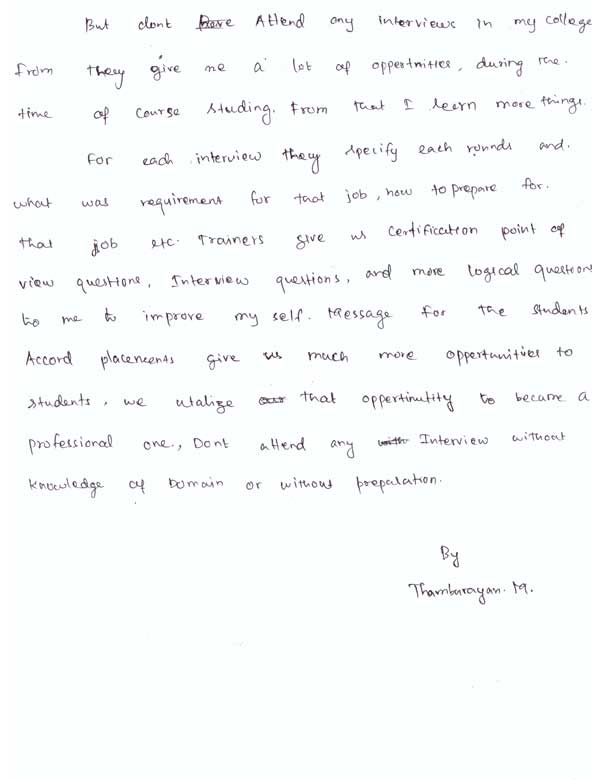 But dont Attend any interviews in my college
From they give me a lot of oppertnities, during the.
time of course studing. From that I learn more things.
For each interview they specify each rounds and.
what was requirement for that job, how to prepare for.
that job etc. Trainers give us certification point of
view questions, Interview questions, and more logical questions
to me to improve my self. Message for the students
Accord placements give us much more oppertunities to
students, we utalize that oppertinutity to became a
professional one., Dont attend any Interview without
knowledge of Domain or without preparation.
By
Thamburayan. M.